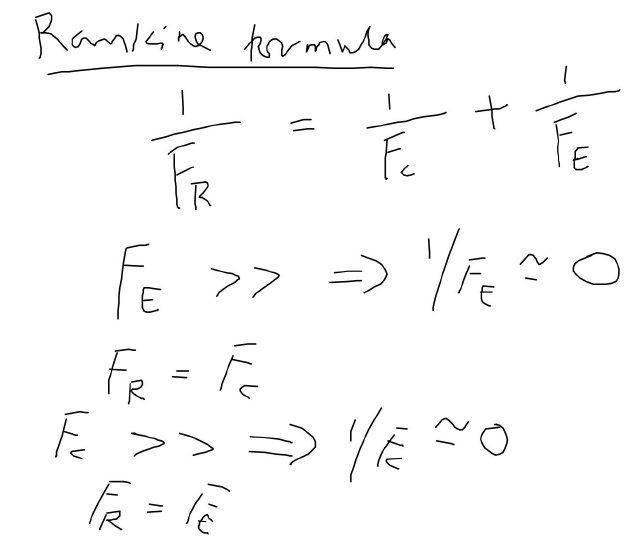 Rankine formula
1/F_R = 1/F_c + 1/F_E
F_E >> ⇒ 1/F_E ≃ 0
F_R = F_c
F_c >> ⇒ 1/F_c ≃ 0
F_R = F_E